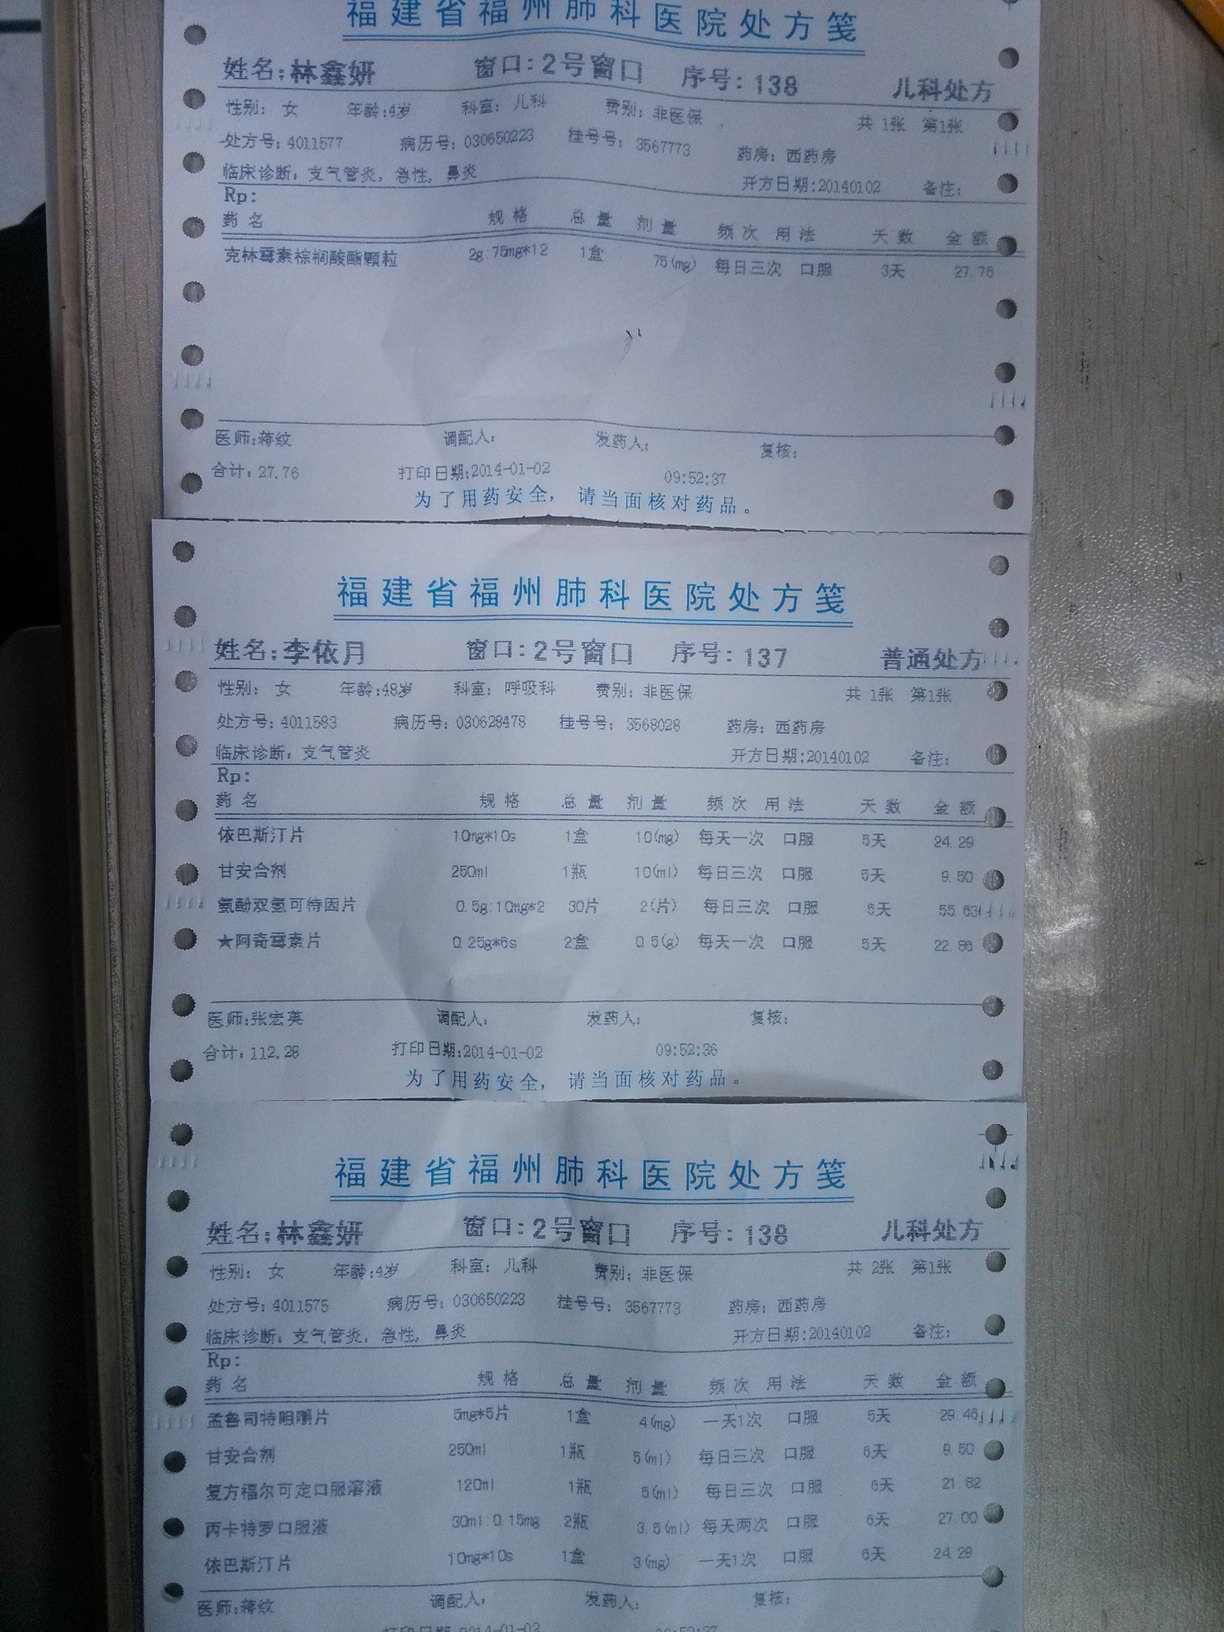 福建省福州肺科医院处方笺
姓名:林鑫妍 窗口:2号窗口 序号:138 儿科处方
性别: 女 年龄:4岁 科室: 儿科 费别: 非医保 共 1张 第1张
处方号: 4011577 病历号: 030650223 挂号号: 3567773 药房: 西药房
临床诊断: 支气管炎, 急性, 鼻炎 开方日期:20140102 备注:
Rp:
药名 规格 总量 剂量 频次 用法 天数 金额
克林霉素棕榈酸酯颗粒 2g:75mg*12 1盒 75(mg) 每日三次 口服 3天 27.76
医师:蒋纹 调配人: 发药人: 复核:
合计: 27.76 打印日期:2014-01-02 09:52:37
为了用药安全, 请当面核对药品。
福建省福州肺科医院处方笺
姓名:李依月 窗口:2号窗口 序号: 137 普通处方
性别: 女 年龄:48岁 科室: 呼吸科 费别: 非医保 共 1张 第1张
处方号: 4011583 病历号: 030628478 挂号号: 3568028 药房: 西药房
临床诊断: 支气管炎 开方日期:20140102 备注:
Rp:
药名 规格 总量 剂量 频次 用法 天数 金额
依巴斯汀片 10mg*10s 1盒 10(mg) 每天一次 口服 5天 24.29
甘安合剂 250ml 1瓶 10(ml) 每日三次 口服 5天 9.50
氨酚双氢可待因片 0.5g:10mg*2 30片 2(片) 每日三次 口服 5天 55.63
★阿奇霉素片 0.25g*6s 2盒 0.5(g) 每天一次 口服 5天 22.86
医师:张宏英 调配人: 发药人: 复核:
合计: 112.28 打印日期:2014-01-02 09:52:36
为了用药安全, 请当面核对药品。
福建省福州肺科医院处方笺
姓名:林鑫妍 窗口:2号窗口 序号: 138 儿科处方
性别: 女 年龄:4岁 科室: 儿科 费别: 非医保 共 2张 第1张
处方号: 4011575 病历号: 030650223 挂号号: 3567773 药房: 西药房
临床诊断: 支气管炎, 急性, 鼻炎 开方日期:20140102 备注:
Rp:
药名 规格 总量 剂量 频次 用法 天数 金额
孟鲁司特咀嚼片 5mg*5片 1盒 4(mg) 一天1次 口服 5天 29.46
甘安合剂 250ml 1瓶 5(ml) 每日三次 口服 6天 9.50
复方福尔可定口服溶液 120ml 1瓶 5(ml) 每日三次 口服 6天 21.62
丙卡特罗口服液 30ml:0.15mg 2瓶 3.5(ml) 每天两次 口服 6天 27.00
依巴斯汀片 10mg*10s 1盒 3(mg) 一天1次 口服 6天 24.29
医师:蒋纹 调配人: 发药人: 复核:
打印日期:2014-01-02 09:52:37